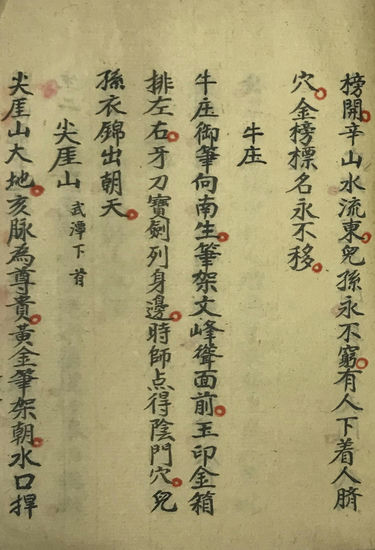 榜開辛山水流東兒孫永不窮有人下着人臍
穴金榜標名永不移
牛庄
牛庄御筆向南生筆架文峰聳面前玉印金箱
排左右牙刀寶劍列身邊時師点得陰門穴兒
孫衣錦出朝天
尖厓山 武潭下首
尖厓山大地亥脉為尊貴黃金筆架朝水口捍